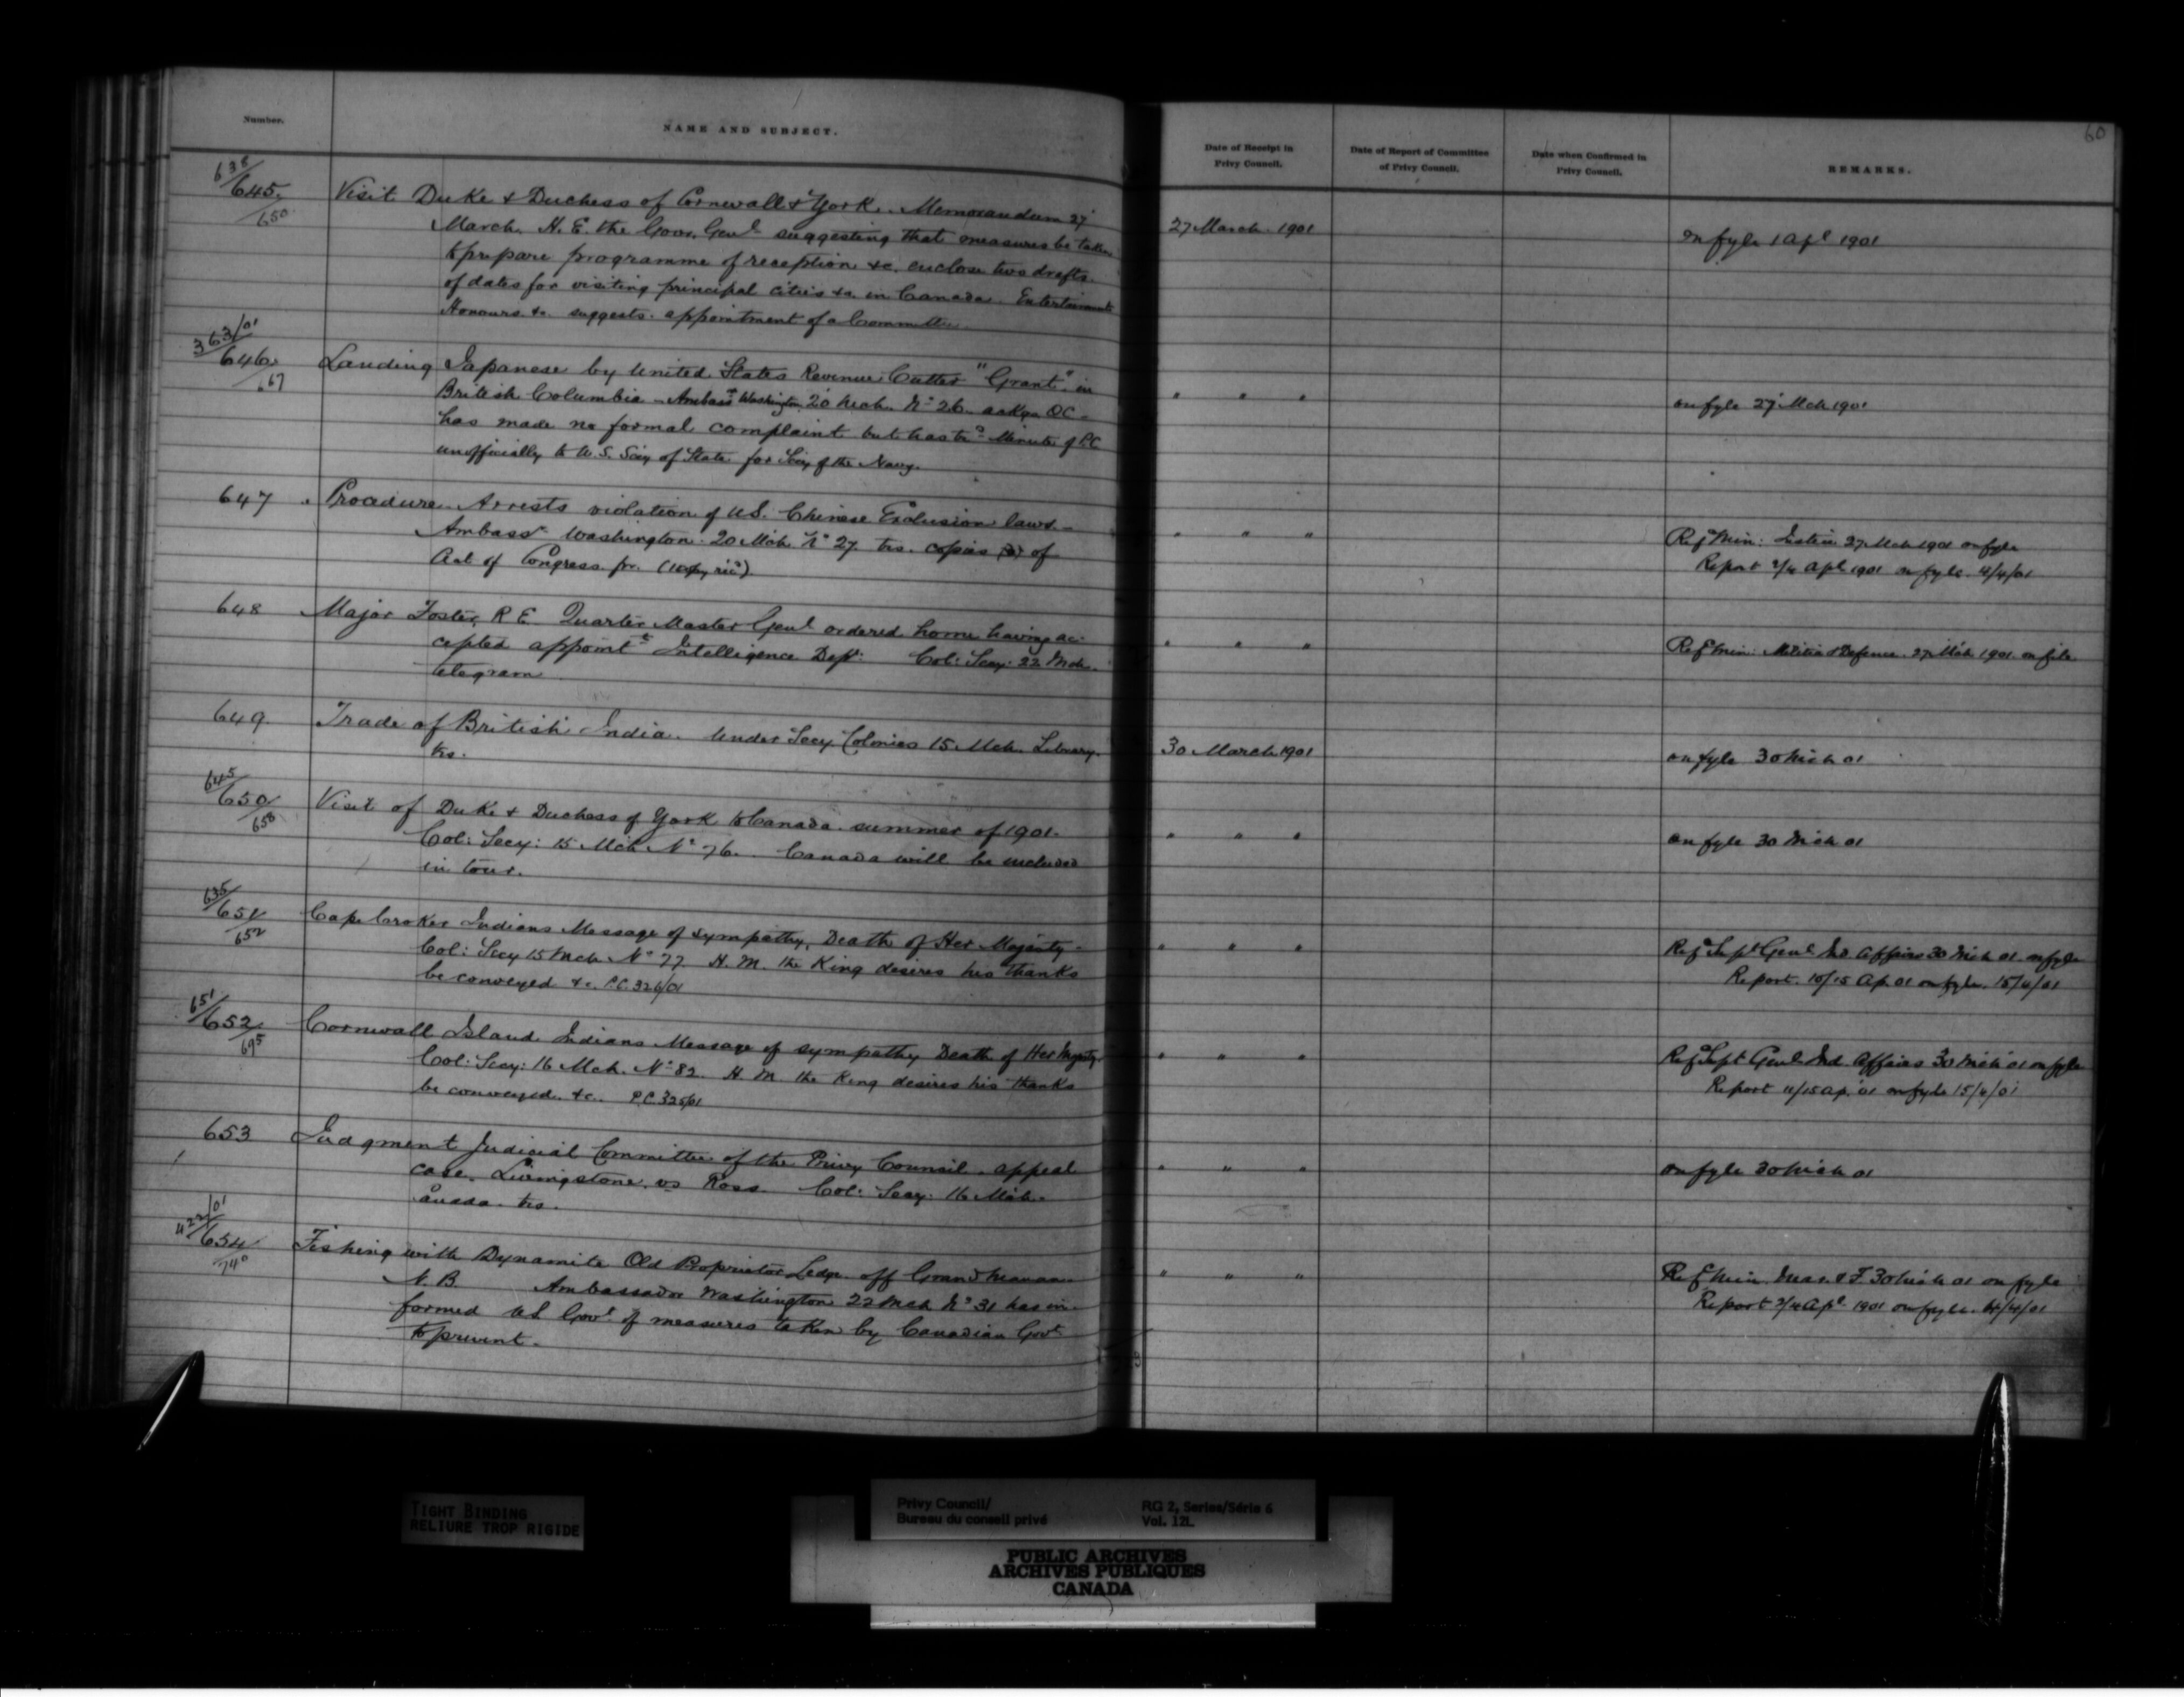 Number.
NAME AND SUBJECT.
638/
645.
/650
Visit Duke & Duchess of Cornwall & York. Memorandum 27
March. H. E. the Govr. Genl suggesting that measures be taken
to prepare programme of reception &c. enclose two drafts
of dates for visiting principal cities &c. in Canada. Entertainments
Honours &c. suggests appointment of a Committee.
363/01
646.
/667
Landing Japanese by United States Revenue Cutter "Grant" in
British Columbia - Ambassr Washington 20 Mch. No 26 OC -
has made no formal complaint but has trd Minute of P.C
unofficially to U.S. Secy of State for Secy of the Navy.
647
Procedure Arrests violation of U.S. Chinese Exclusion laws -
Ambassr Washington 20 Mch No 27 trs. copies (2) of
Act of Congress for. (1 copy recd)
648
Major Foster, R E Quarter Master Genl ordered home having ac-
cepted appointt Intelligence Dept: Col: Secy: 22 Mch.
telegram
649.
Trade of British India. Under Secy Colonies 15 Mch. Library.
trs.
645/
650/
658
Visit of Duke & Duchess of York to Canada summer of 1901.
Col: Secy: 15 Mch No 76. Canada will be included
in tour.
635/
651/
652
Cape Croker Indians Message of sympathy, Death of Her Majesty -
Col: Secy 15 Mch No 77. H. M. the King desires his thanks
be conveyed &c. P.C. 326/01
651/
652.
/695
Cornwall Island Indians Message of sympathy Death of Her Majesty.
Col: Secy: 16 Mch. No 82. H. M. the King desires his thanks
be conveyed. &c. P.C. 325/01
653
Judgment Judicial Committee of the Privy Council. appeal
case, Livingstone vs Ross. Col: Secy: 16 Mch.
Canada. trs.
422/01
654/
740
Fishing with Dynamite Old Proprietor Ledge off Grand Manan
N. B. Ambassador Washington 22 Mch No 31 has in-
formed US Govt of measures taken by Canadian Govt
to prevent.
60
Date of Receipt in
Privy Council.
Date of Report of Committee
of Privy Council.
Date when Confirmed in
Privy Council.
REMARKS.
27 March 1901
on fyle 1 Apl 1901
" " "
on fyle 27 Mch 1901
" " "
Refd Min: Justice 27 Mch 1901 on fyle
Report 2/4 Apl 1901 on fyle. 4/4/01
" " "
Refd Min: Militia & Defence. 27 Mch 1901. on file
30 March 1901
on fyle 30 Mch 01
" " "
on fyle 30 Mch 01
" " "
Refd Supt Genl Ind Affairs 30 Mch 01. on fyle
Report. 10/15 Ap. 01 on fyle. 15/4/01
" " "
Refd Supt Genl Ind. Affairs 30 Mch 01 on fyle
Report 11/15 Ap. 01 on fyle 15/4/01
" " "
on fyle 30 Mch 01
" " "
Refd Min. Mar. & F. 30 Mch 01 on fyle
Report 2/4 Apl 1901 on fyle. 4/4/01
TIGHT BINDING
RELIURE TROP RIGIDE
Privy Council/
Bureau du conseil privé
RG 2, Series/Série 6
Vol. 121.
PUBLIC ARCHIVES
ARCHIVES PUBLIQUES
CANADA